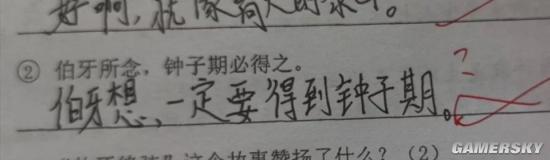 好啊，就像
② 伯牙所念，钟子期必得之。
伯牙想，一定要得到钟子期。
?
这个故事赞扬了什么？（2）
GAMERSKY